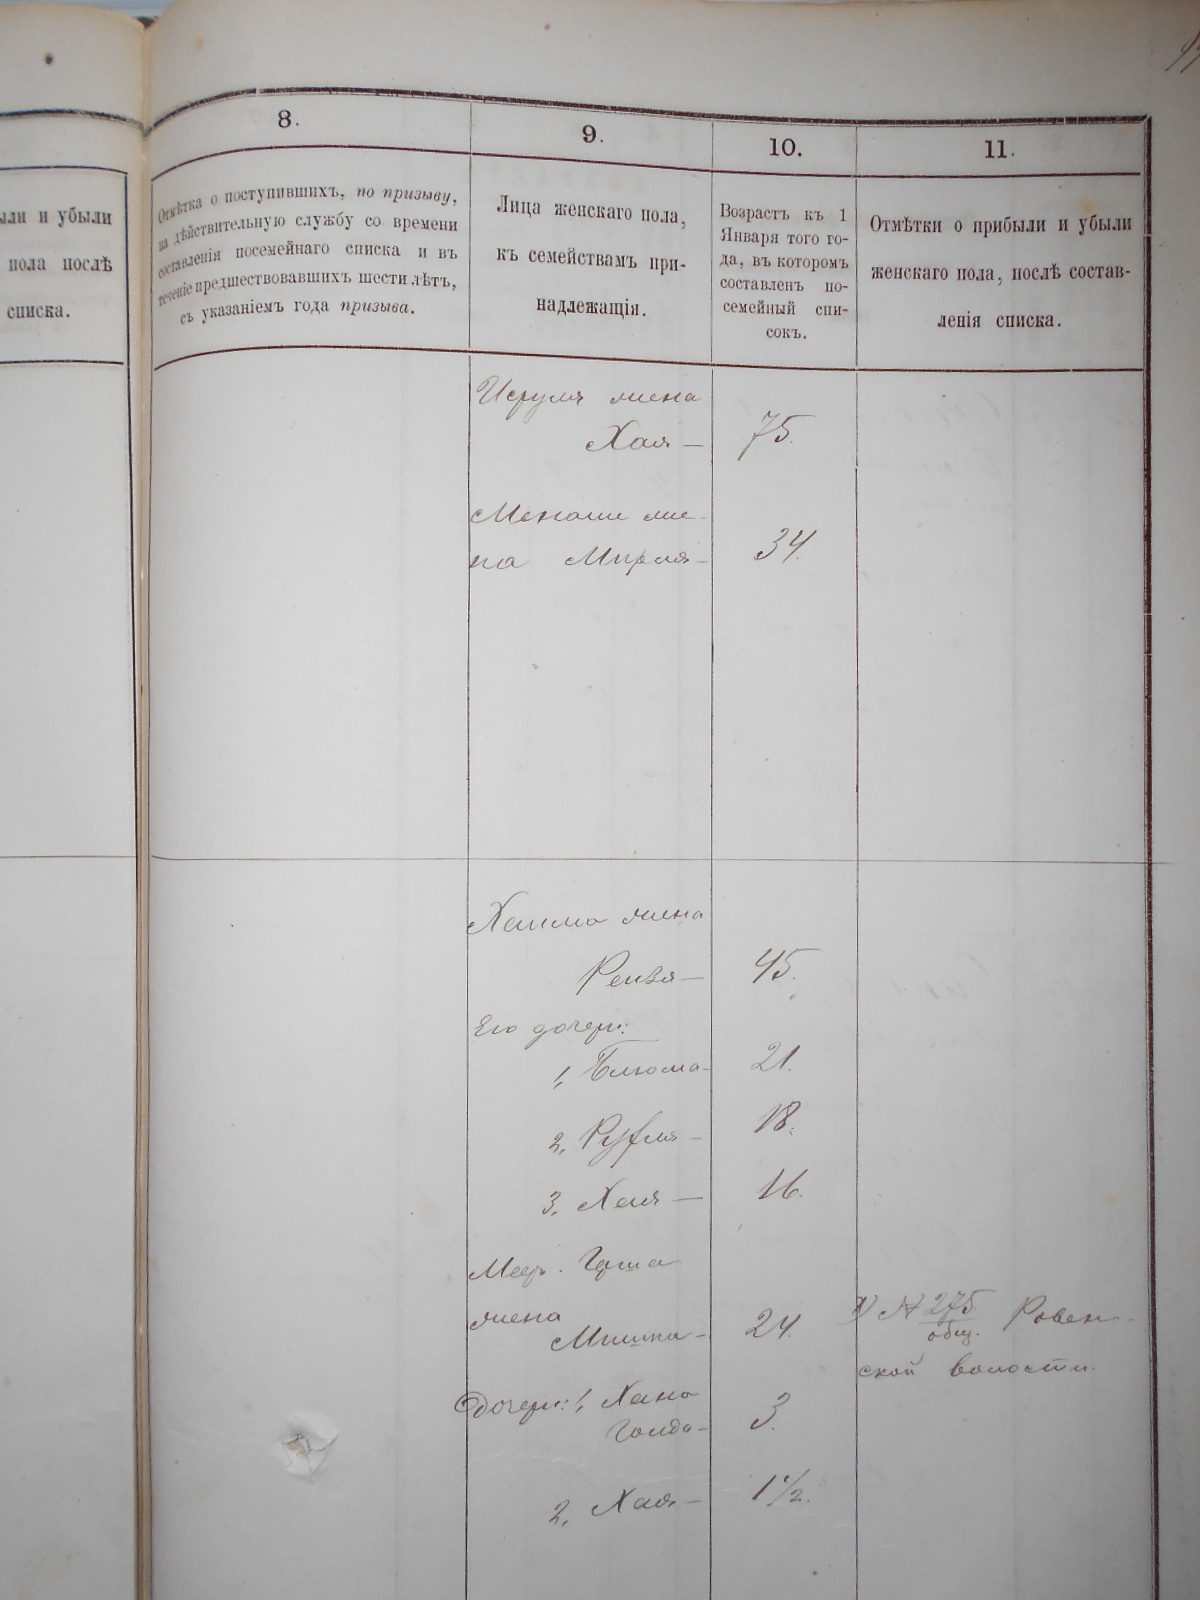 ыли и убыли
пола послѣ
списка.
8.
9.
10.
11.
Отмѣтка о поступившихъ, по призыву,
на дѣйствительную службу со времени
составленія посемейнаго списка и въ
теченіе предшествовавшихъ шести лѣтъ,
съ указаніемъ года призыва.
Лица женскаго пола,
къ семействамъ при-
надлежащія.
Возрастъ къ 1
Января того го-
да, въ которомъ
составленъ по-
семейный спи-
сокъ.
Отмѣтки о прибыли и убыли
женскаго пола, послѣ состав-
ленія списка.
Исруля жена
Хая — 75.
Менаши же-
на Мирля — 34.
Хаима жена
Рейзя — 45.
Его дочери:
1, Блюма — 21.
2, Руфля — 18.
3, Хая — 16.
Меер.
жена
24. № 275 Ровен-
общ.
ской волости.
Дочери: 1, Хана
Голда — 3.
2, Хая — 1 1/2.